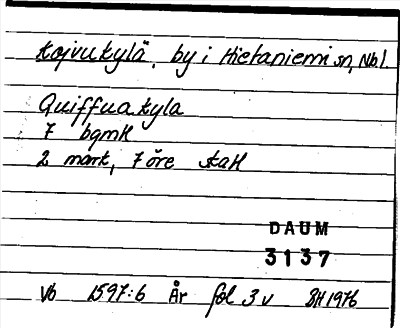 Koivukylä, by i Hietaniemi sn, Nbl.
Quiffuakyla
7 bgmH
2 mark, 7 öre skaH
DAUM
3137
Vb 1597:6 År fol 3 v BH 1976